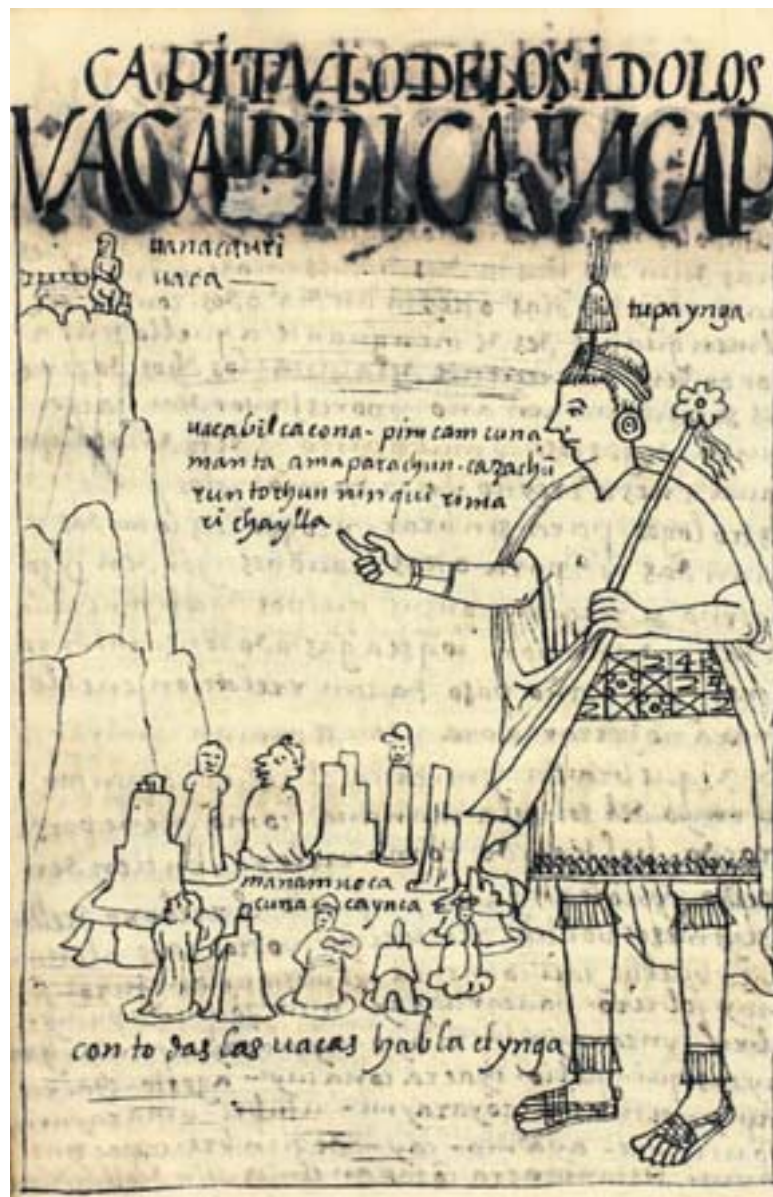 CAPÍTVLO DE LOS IDOLOS
VACA BILLCA INCAP
uanacauri
uaca
tupa ynga
uacabilcacona - pim camcuna
manta ama parachun - cazachũ
runtochun ninqui rima
ri chaylla
manam noca
cuna caynca
con todas las uacas habla el ynga